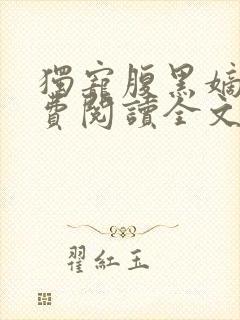 獨寵腹黑嫡
費閱讀全文
翟紅玉